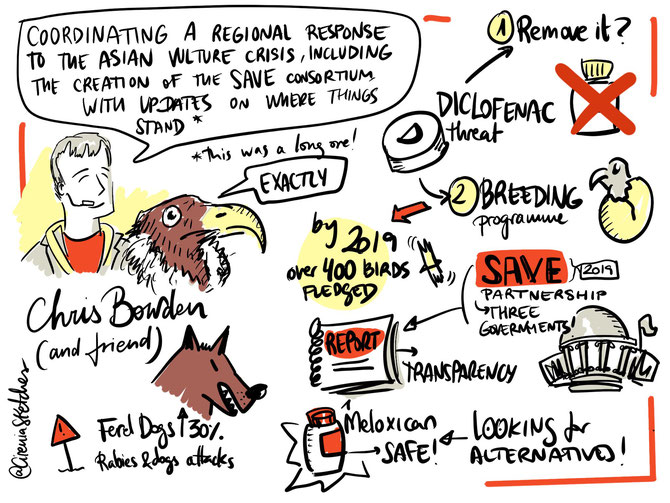 COORDINATING A REGIONAL RESPONSE
TO THE ASIAN VULTURE CRISIS, INCLUDING
THE CREATION OF THE SAVE CONSORTIUM
WITH UPDATES ON WHERE THINGS
STAND*
*this was a long one!
EXACTLY
Chris Bowden
(and friend)
@CireniaSketches
Feral Dogs ↑30%
Rabies & dogs attacks
1 Remove it?
DICLOFENAC
threat
2 BREEDING
programme
by 2019
over 400 BIRDS
PLEDGED
SAVE 2019
PARTNERSHIP
THREE
GOVERNMENTS!
REPORT
TRANSPARENCY
Meloxican
SAFE!
LOOKING for
ALTERNATIVES!